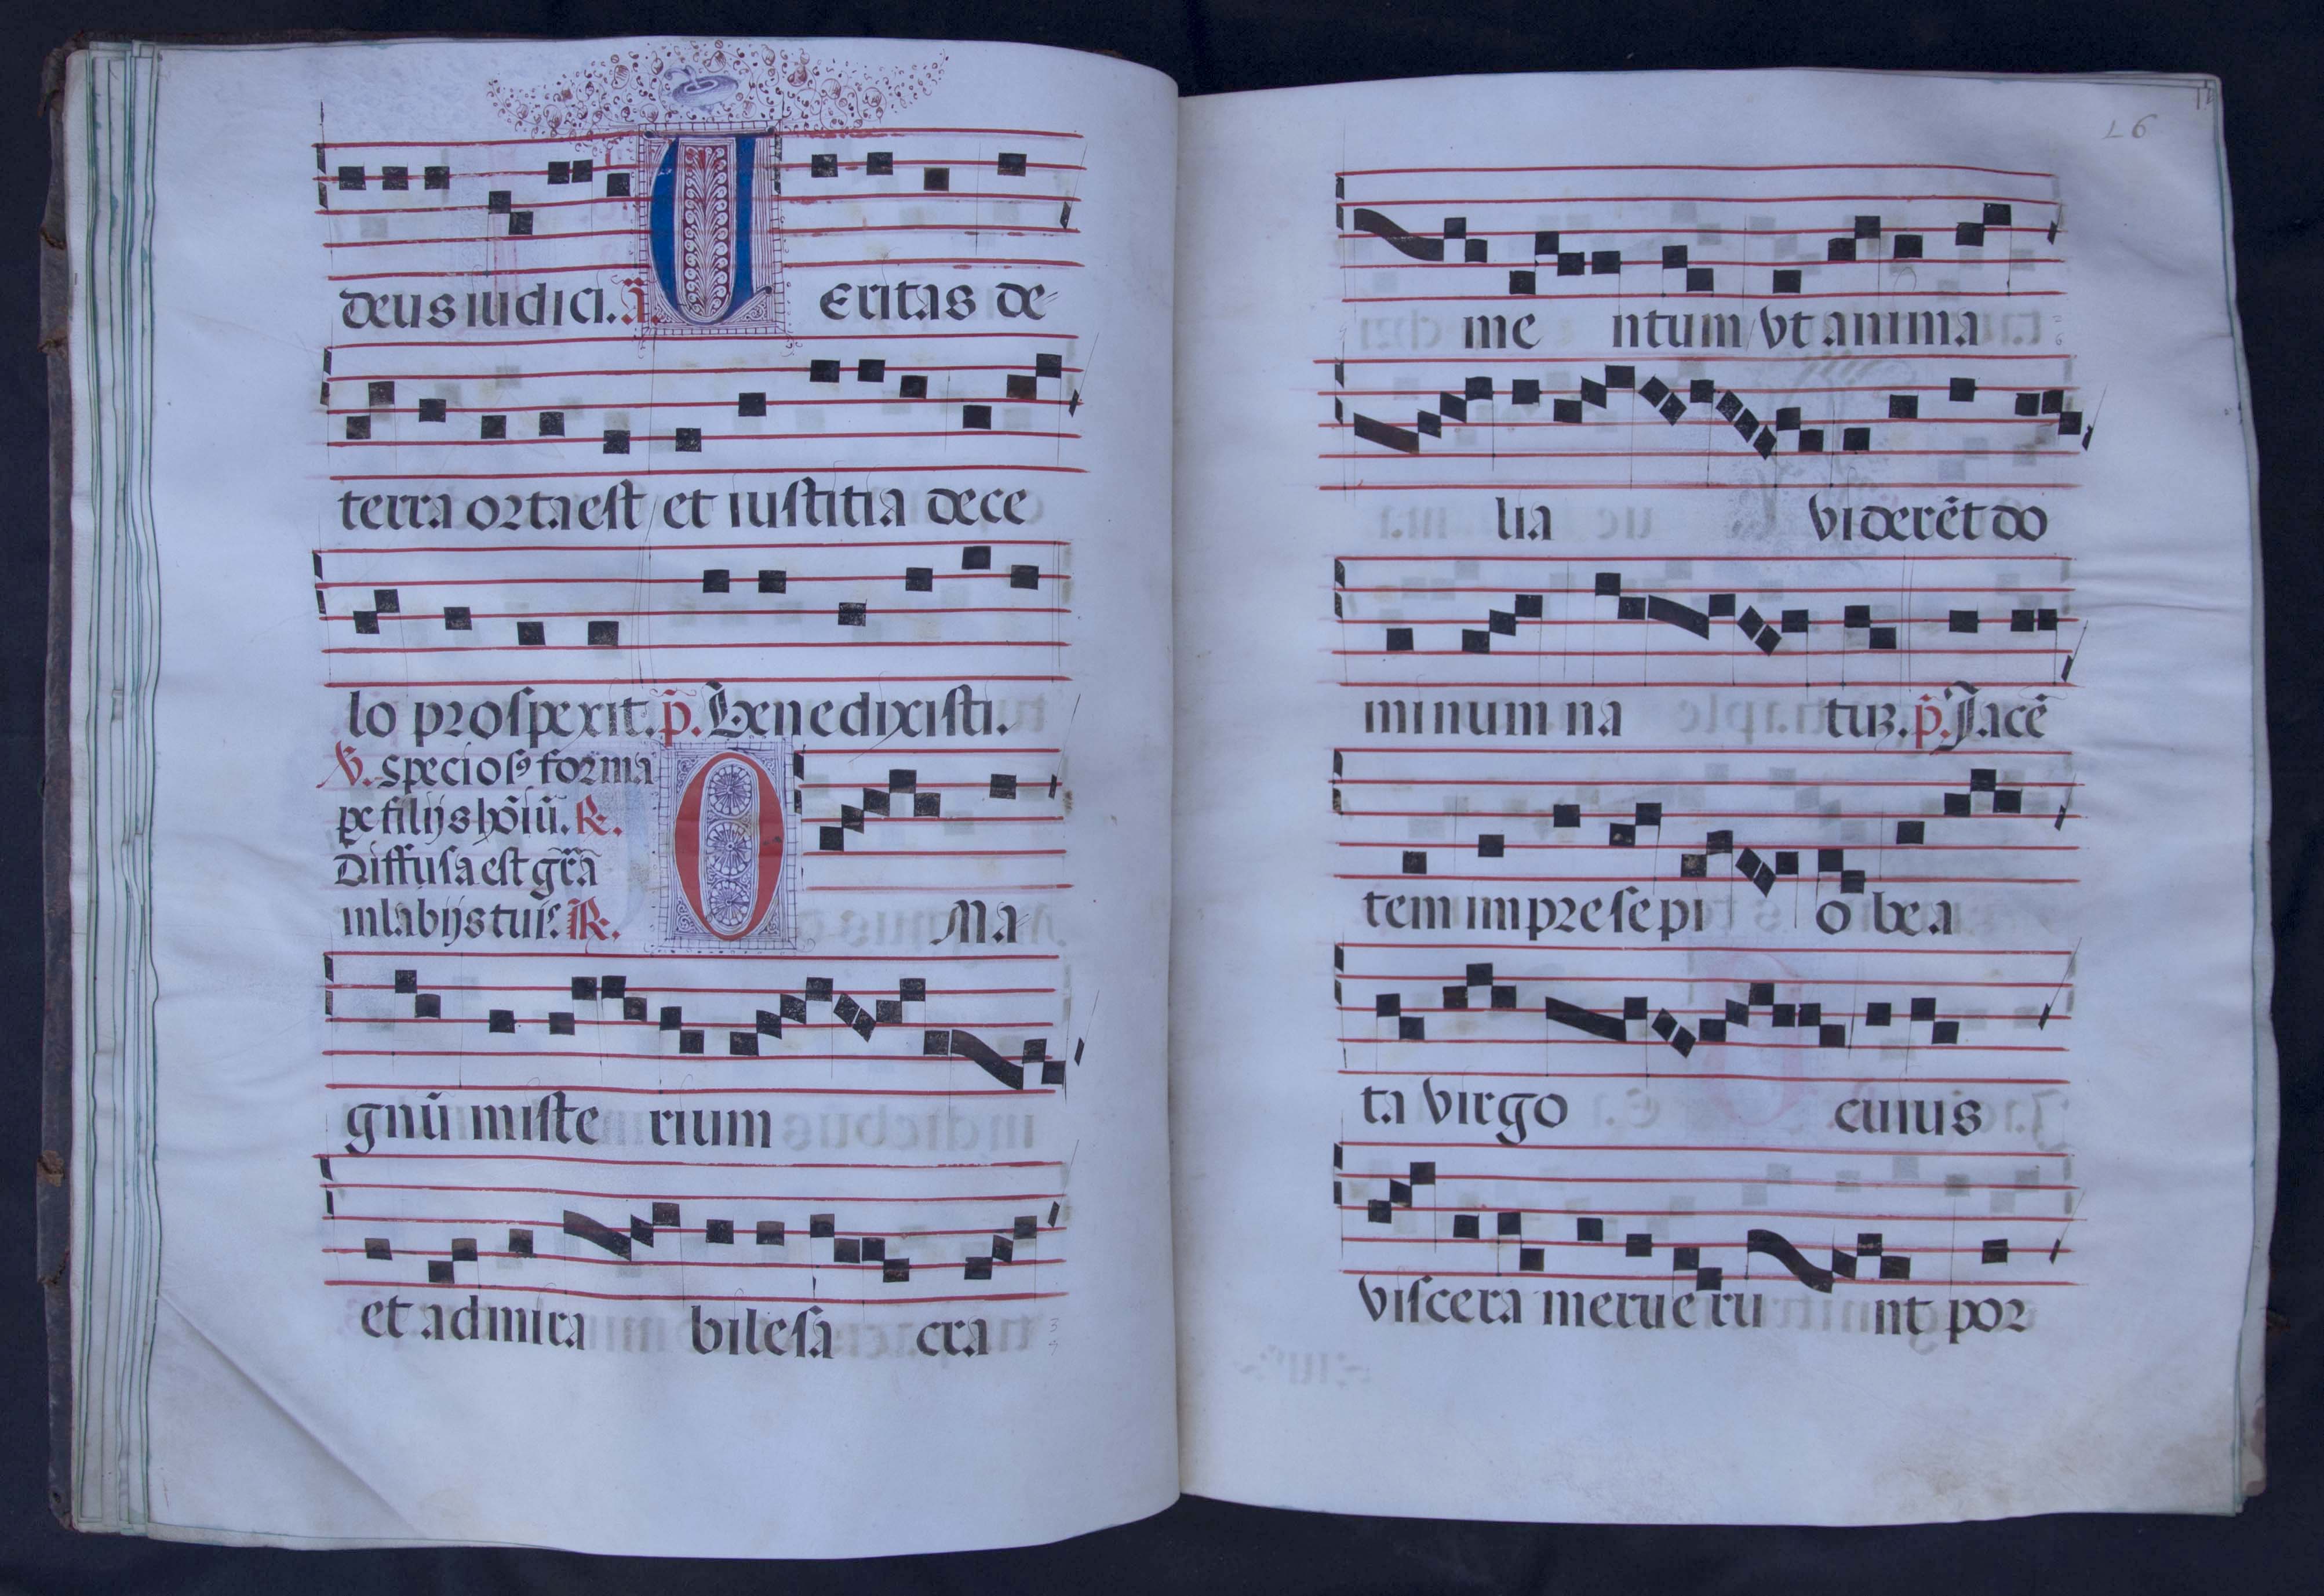 deus iudici. ã. VEritas de-
terra orta est / et iustitia dece
lo prospexit. p̃. Benedixisti.
℣. Specios9 forma
pe filijs hõiũ. ℟.
Diffusa est gr̃a
in labijs tuis. ℟. O Ma-
gnũ miste rium
et admira bile sa cra
26
me ntum / vt anima
lia viderẽt do
minum na tuꝫ. p̃. Jacẽ
tem in presepi o bea
ta virgo cuius
viscera merueru nt por